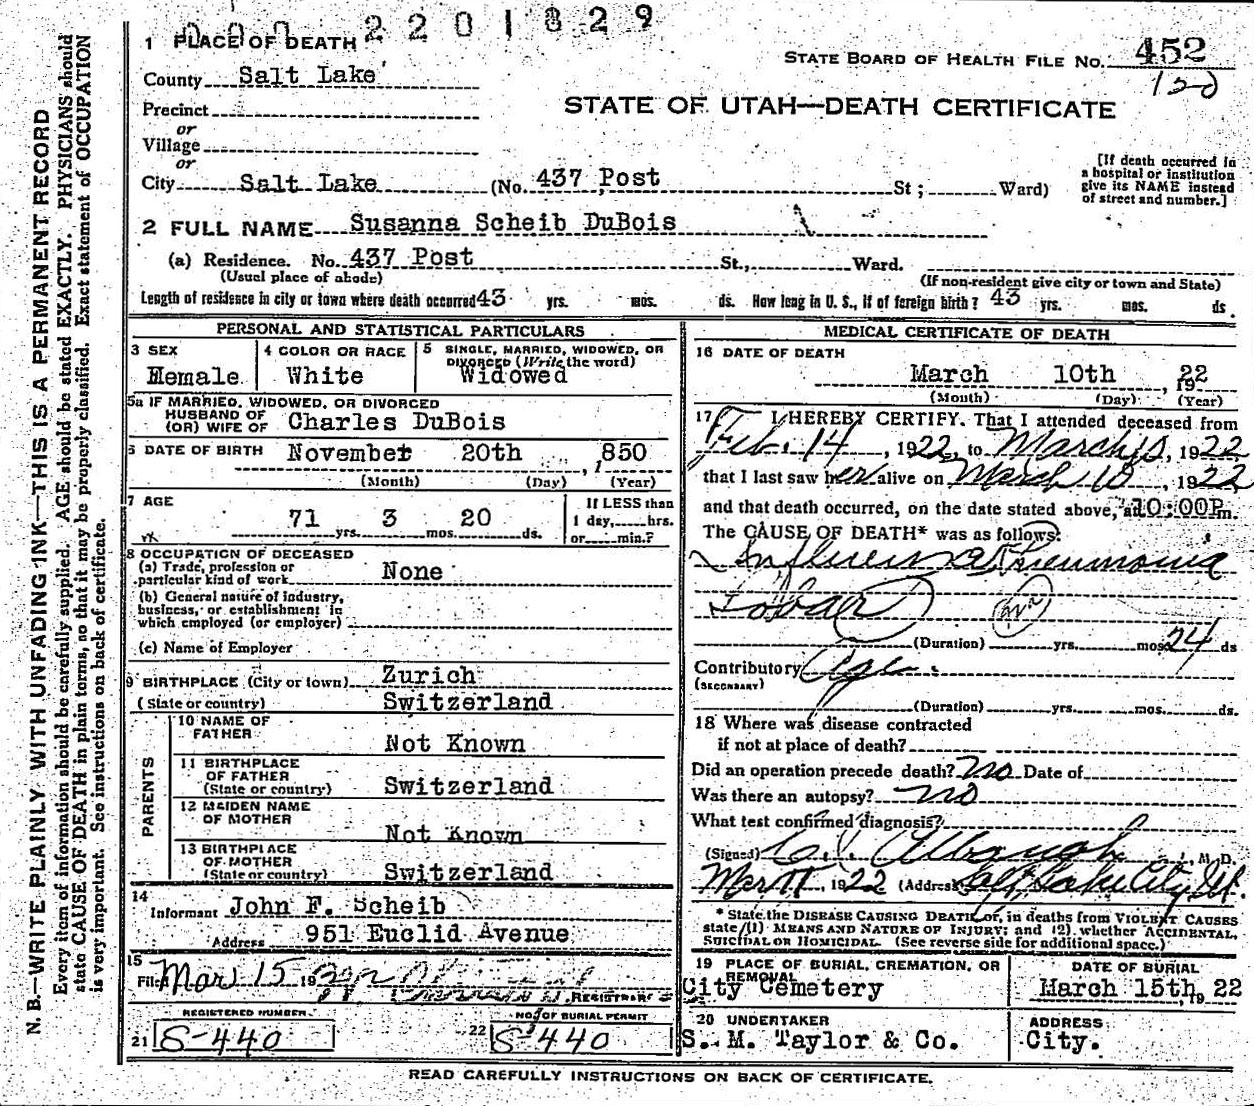 2201829
1 PLACE OF DEATH
STATE BOARD OF HEALTH FILE No. 452
County Salt Lake
120
Precinct
STATE OF UTAH—DEATH CERTIFICATE
or
Village
or
City Salt Lake (No. 437 Post St; Ward)
[If death occurred in
a hospital or institution
give its NAME instead
of street and number.]
2 FULL NAME Susanna Scheib DuBois
(a) Residence. No. 437 Post St., Ward.
(Usual place of abode) (If non-resident give city or town and State)
Length of residence in city or town where death occurred 43 yrs. mos. ds. How long in U. S., if of foreign birth? 43 yrs. mos. ds.
PERSONAL AND STATISTICAL PARTICULARS
3 SEX
4 COLOR OR RACE
5 SINGLE, MARRIED, WIDOWED, OR
DIVORCED (Write the word)
Hemale White Widowed
5a IF MARRIED, WIDOWED, OR DIVORCED
HUSBAND OF
(OR) WIFE OF Charles DuBois
6 DATE OF BIRTH November 20th , 1850
(Month) (Day) (Year)
7 AGE
71 yrs. 3 mos. 20 ds.
If LESS than
1 day, hrs.
or min.?
8 OCCUPATION OF DECEASED
(a) Trade, profession or
particular kind of work None
(b) General nature of industry,
business, or establishment in
which employed (or employer)
(c) Name of Employer
9 BIRTHPLACE (City or town) Zurich
(State or country) Switzerland
PARENTS
10 NAME OF
FATHER Not Known
11 BIRTHPLACE
OF FATHER
(State or country) Switzerland
12 MAIDEN NAME
OF MOTHER Not Known
13 BIRTHPLACE
OF MOTHER
(State or country) Switzerland
14
Informant John F. Scheib
Address 951 Euclid Avenue
15
Filed Mar 15, 19
REGISTRAR
REGISTERED NUMBER
NO. OF BURIAL PERMIT
21 S-440
22 S-440
MEDICAL CERTIFICATE OF DEATH
16 DATE OF DEATH
March 10th , 1922
(Month) (Day) (Year)
17 I HEREBY CERTIFY. That I attended deceased from
Feb. 14, 1922, to March 10, 1922
that I last saw her alive on March 10, 1922
and that death occurred, on the date stated above, at 10:00P m.
The CAUSE OF DEATH* was as follows:
Influenza Pneumonia
Lobar
(Duration) yrs. mos. 24 ds
Contributory Age.
(SECONDARY)
(Duration) yrs. mos. ds.
18 Where was disease contracted
if not at place of death?
Did an operation precede death? no Date of
Was there an autopsy? no
What test confirmed diagnosis?
(Signed) , M. D.
Mar 11, 1922 (Address) Salt Lake City, Ut.
* State the DISEASE CAUSING DEATH, or, in deaths from VIOLENT CAUSES
state (1) MEANS AND NATURE OF INJURY; and (2) whether ACCIDENTAL,
SUICIDAL OR HOMICIDAL. (See reverse side for additional space.)
19 PLACE OF BURIAL, CREMATION, OR
REMOVAL
City Cemetery
DATE OF BURIAL
March 15th, 1922
20 UNDERTAKER
S. M. Taylor & Co.
ADDRESS
City.
READ CAREFULLY INSTRUCTIONS ON BACK OF CERTIFICATE.
N. B.—WRITE PLAINLY WITH UNFADING INK—THIS IS A PERMANENT RECORD
Every item of information should be carefully supplied. AGE should be stated EXACTLY. PHYSICIANS should
state CAUSE OF DEATH in plain terms, so that it may be properly classified. Exact statement of OCCUPATION
is very important. See instructions on back of certificate.